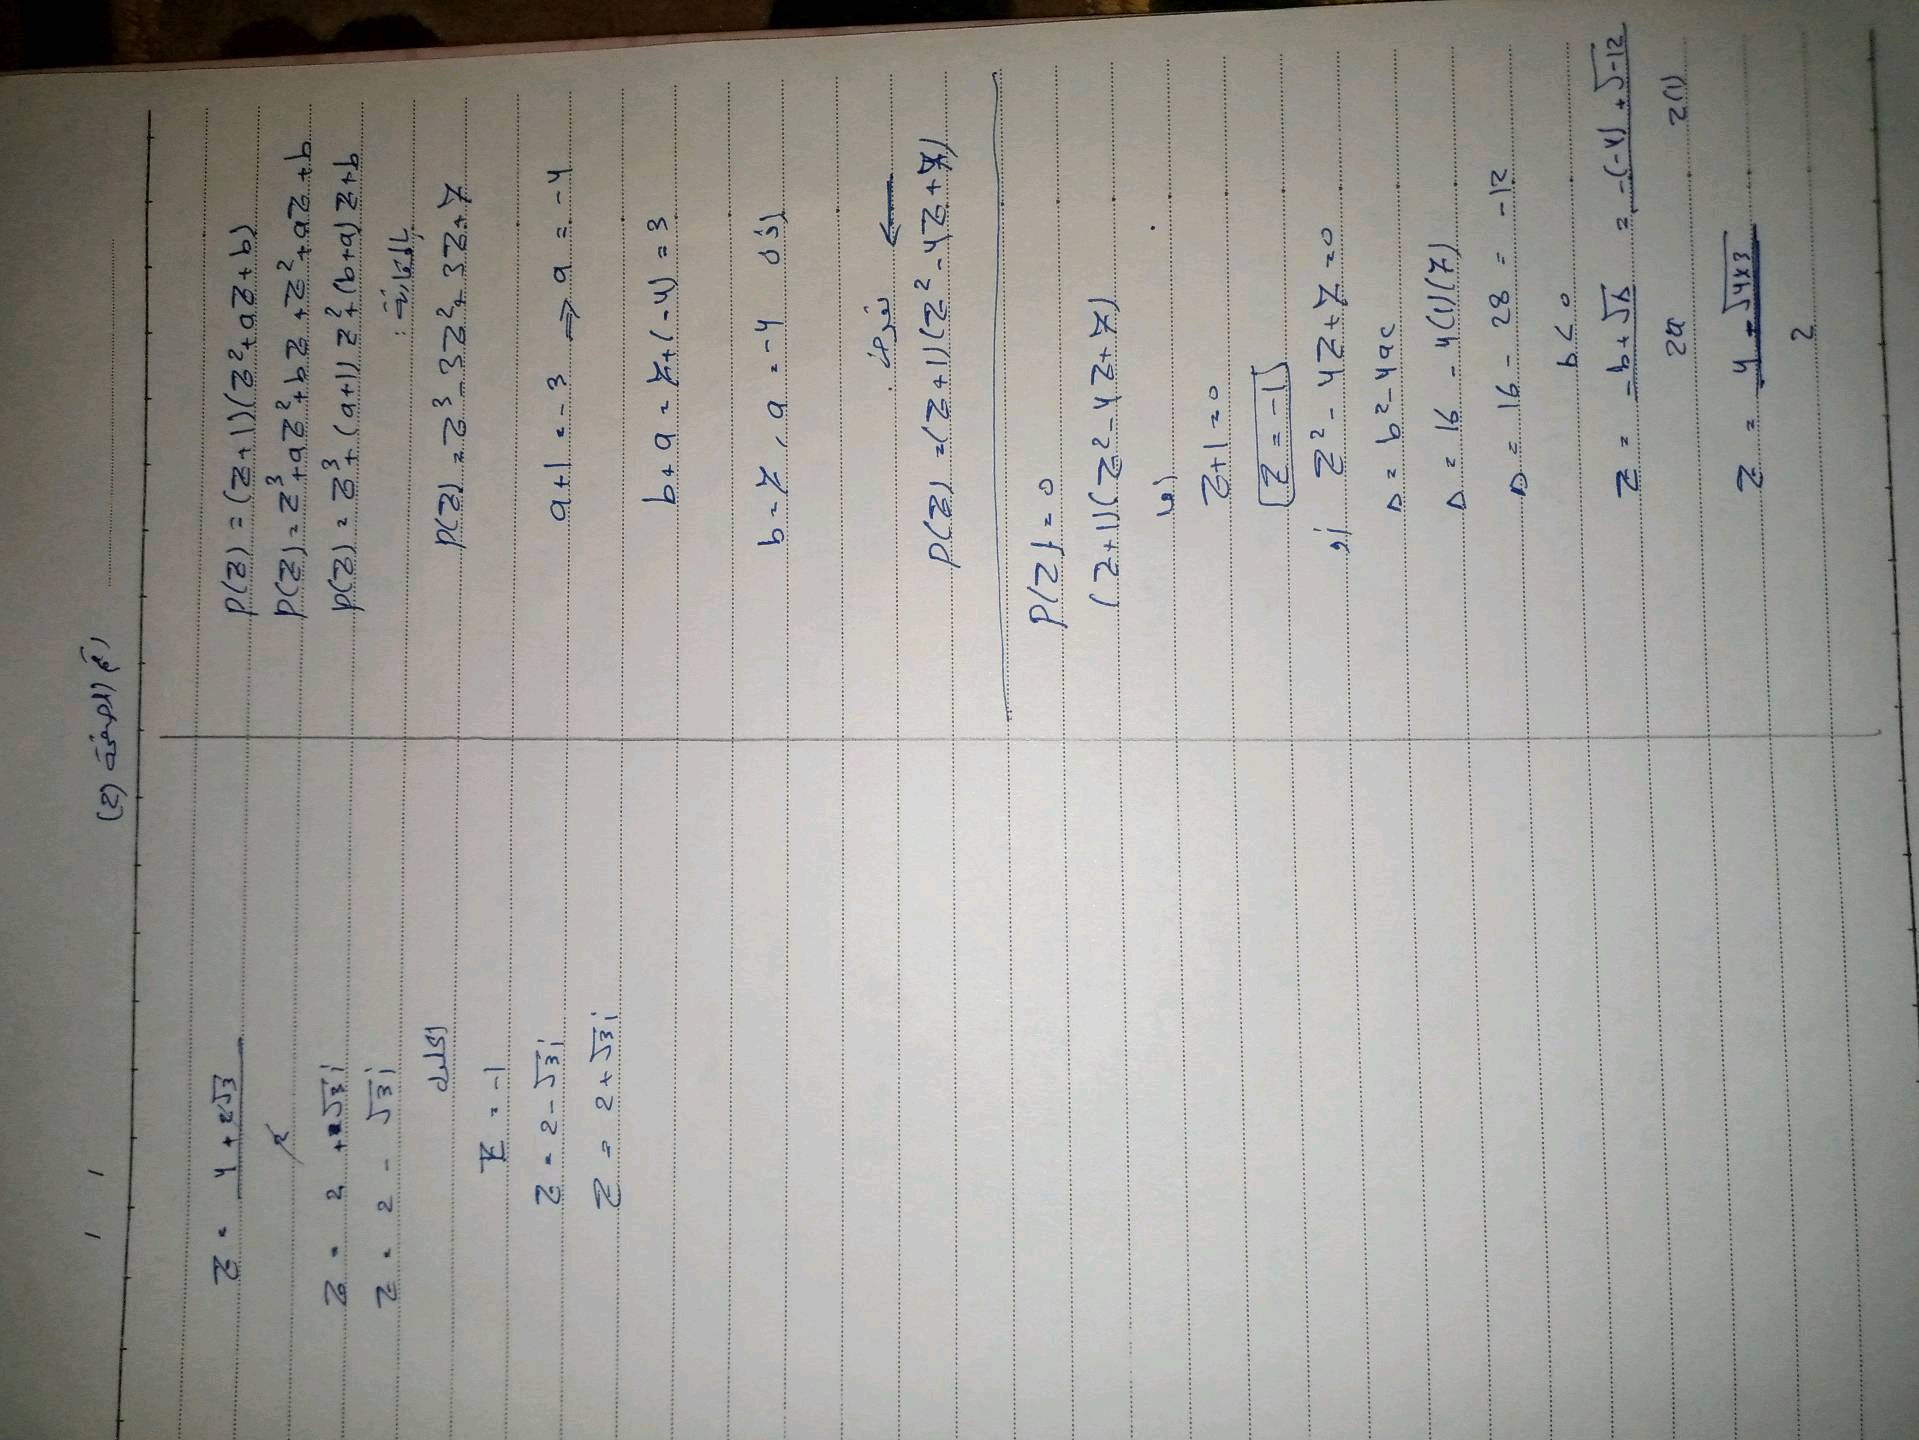 P(z) = (z+1)(z²+az+b)
P(z) = z³+az²+bz+z²+az+b
P(z) = z³+(a+1)z²+(b+a)z+b
بالمطابقة:
P(z) = z³-3z²+3z+7
a+1 = -3 ⇒ a = -4
b+a = 7+(-4) = 3
b = 7, a = -4 إذن
←
P(z) = (z+1)(z²-4z+7)
P(z) = 0
(z+1)(z²-4z+7)
إما
z+1 = 0
z = -1
أو z²-4z+7 = 0
Δ = b²-4ac
Δ = 16 - 4(1)(7)
Δ = 16 - 28 = -12
b < 0
z = -b+√Δ = -(-4)+√-12
2a 2(1)
z = 4+√4×3
2
z = 4+2√3
2
z = 2+√3i
z = 2-√3i
z = -1
z = 2-√3i
z = 2+√3i